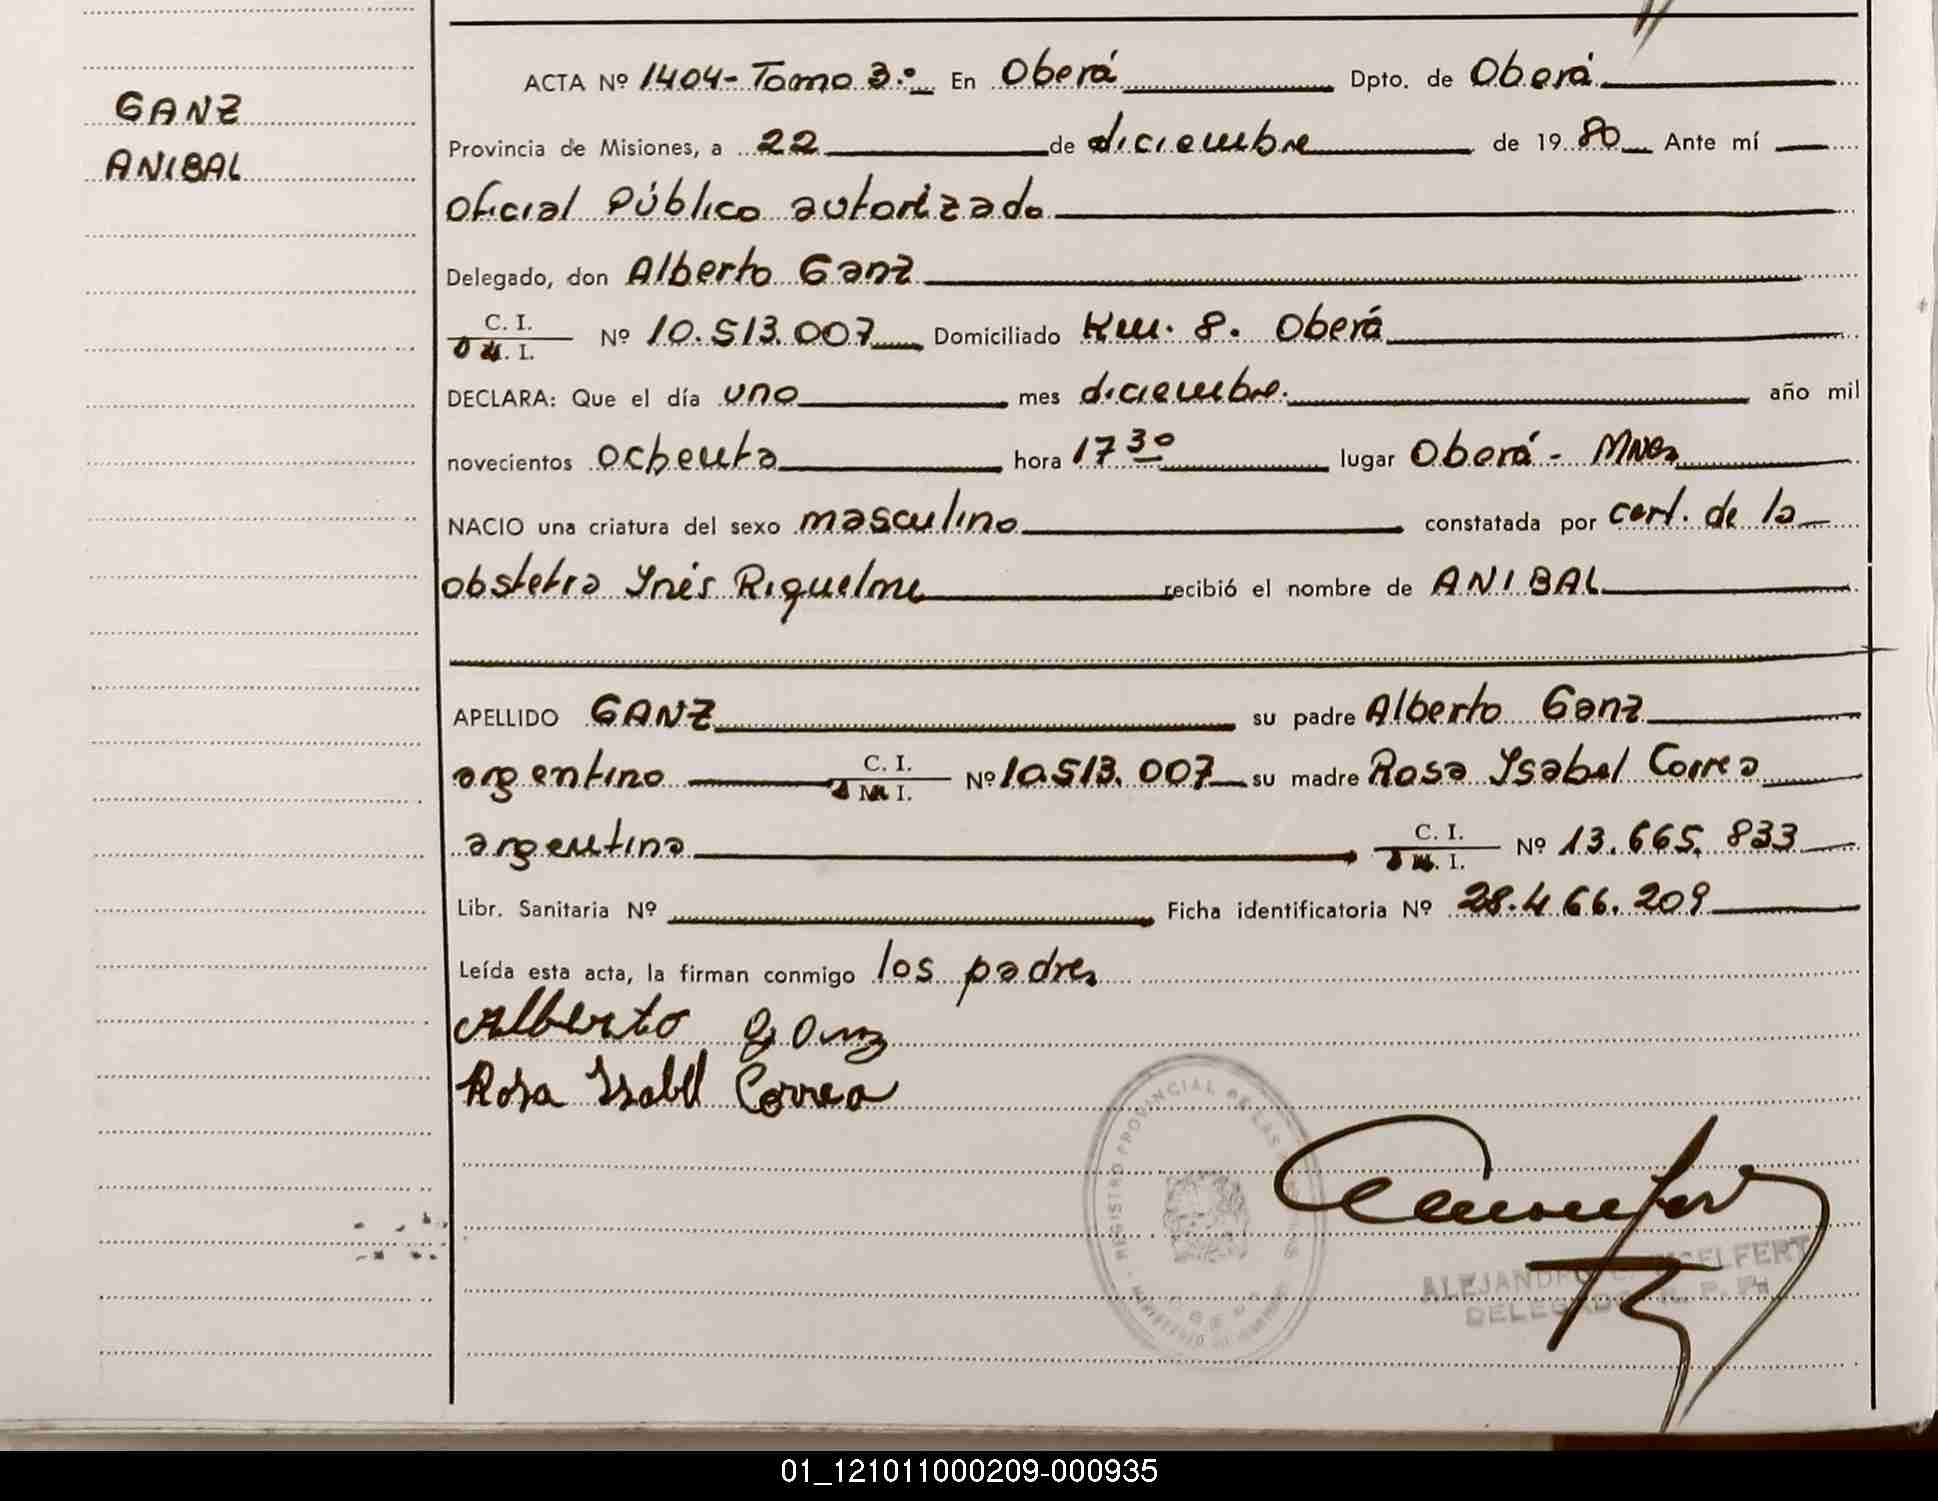 GANZ
ANIBAL
ACTA Nº 1404- Tomo 3º En Oberá Dpto. de Oberá
Provincia de Misiones, a 22 de diciembre de 1980 Ante mí
Oficial Público autorizado
Delegado, don Alberto Ganz
C. I.
I. Nº 10.513.007 Domiciliado Km. 8. Oberá
DECLARA: Que el día uno mes diciembre. año mil
novecientos ochenta hora 17 30 lugar Oberá - Mnes
NACIO una criatura del sexo masculino constatada por cert. de la
obstetra Inés Riquelme recibió el nombre de ANIBAL
APELLIDO GANZ su padre Alberto Ganz
argentino C. I.
I. Nº 10.513.007 su madre Rosa Ysabel Correa
argentina C. I.
I. Nº 13.665.833
Libr. Sanitaria Nº Ficha identificatoria Nº 28.466.209
Leída esta acta, la firman conmigo los padres
Alberto Ganz
Rosa Isabel Correa
REGISTRO PROVINCIAL DE LAS
ALEJANDRO
DELEGADO R. P.
01_121011000209-000935